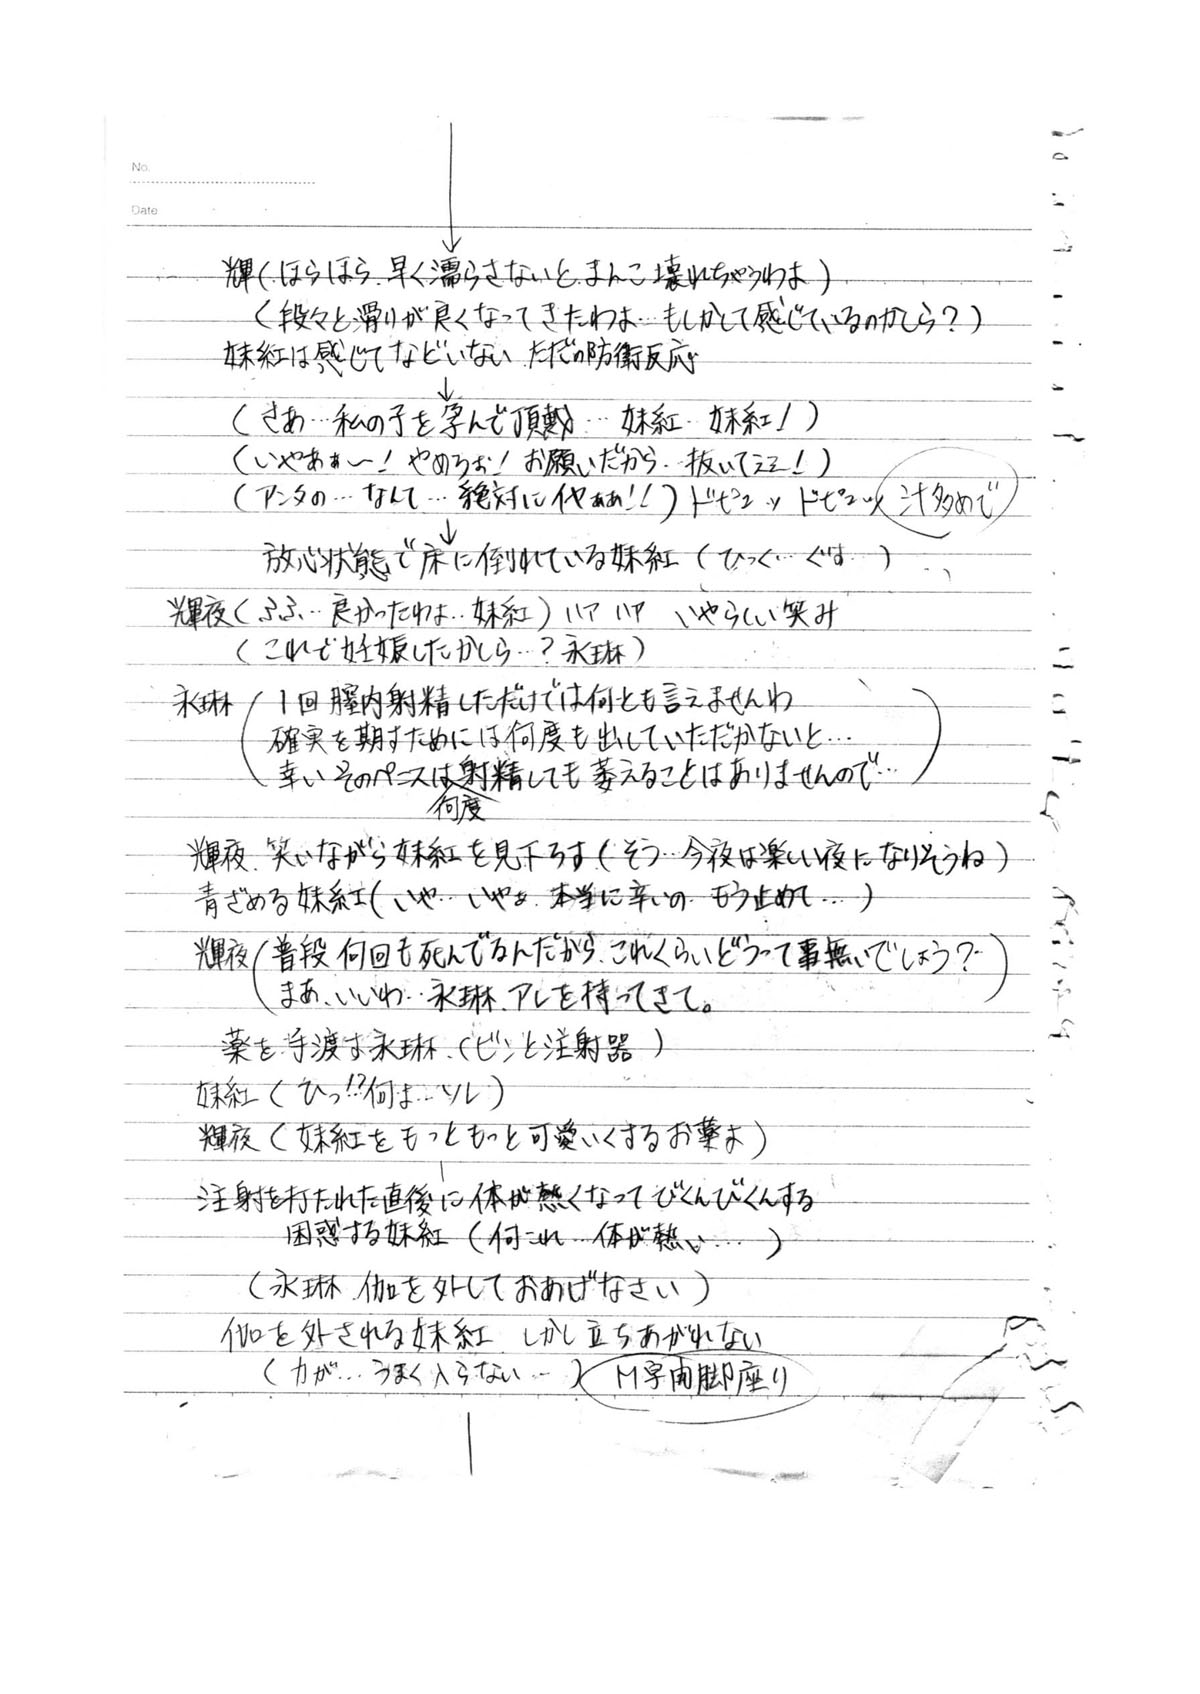 No.
Date
輝(ほらほら 早く濡らさないと まんこ壊れちゃうわよ)
(段々と滑りが良くなってきたわよ…もしかして感じているのかしら?)
妹紅は感じてなどいない ただの防衛反応
↓
(さあ…私の子を孕んで頂戴…妹紅…妹紅!)
(いやあぁ〜!やめろぉ!お願いだから…抜いてええ!)
(アンタの…なんて…絶対にイヤぁあ!!)ドピュッ ドピュッ 汁多めで
↓
放心状態で床に倒れている妹紅(ひっく…ぐす…)
輝夜(ふふ…良かったわよ…妹紅)ハア ハア いやらしい笑み
(これで妊娠したかしら…?永琳)
永琳(1回膣内射精しただけでは何とも言えませんわ
確実を期すためには何度も出していただかないと…
幸いそのペニスは何度射精しても萎えることはありませんので…)
輝夜、笑いながら妹紅を見下ろす(そう…今夜は楽しい夜になりそうね)
青ざめる妹紅(いや…いやぁ、本当に辛いの もう止めて…)
輝夜(普段何回も死んでるんだから、これくらいどうって事無いでしょう?
まあ、いいわ…永琳、アレを持ってきて。)
薬を手渡す永琳(ビンと注射器)
妹紅(ひっ!?何よ…ソレ)
輝夜(妹紅をもっともっと可愛いくするお薬よ)
注射を打たれた直後に体が熱くなってびくんびくんする
困惑する妹紅(何これ…体が熱い…)
(永琳、伽を外しておあげなさい)
伽を外される妹紅 しかし立ちあがれない
(力が…うまく入らない…)M字開脚座り